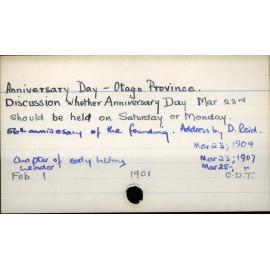 Anniversary Day - Otago Province.
Discussion whether Anniversary Day Mar 23rd
should be held on Saturday or Monday.
56th anniversary of the founding. Address by D. Reid.
Mar 23, 1904
Chapter of early history Mar 23, 1907
leader Mar 25, "
Feb 1 1901 O.D.T.